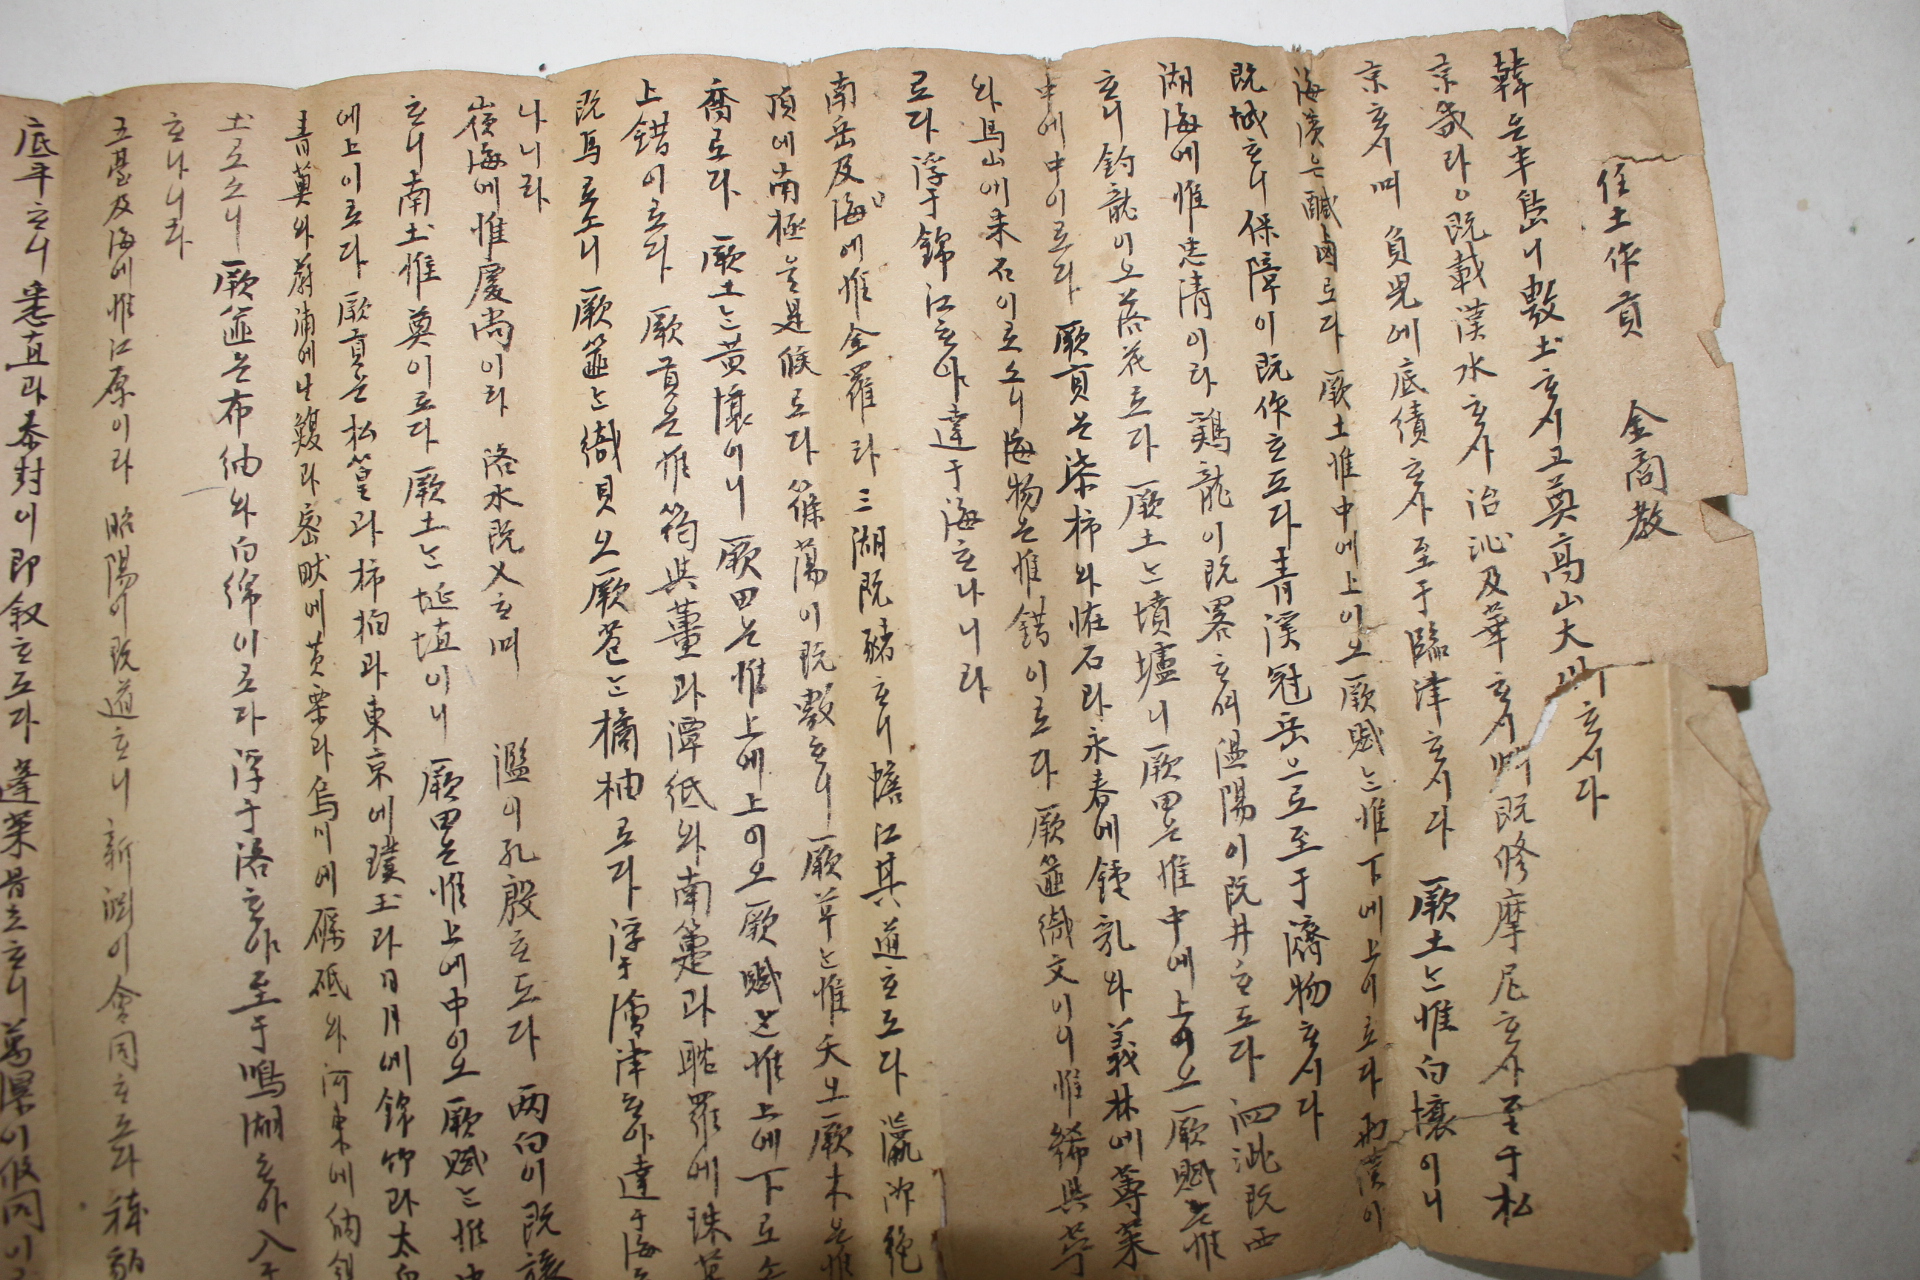 任土作貢 金商敎
韓은半島니敷土ᄒᆞ시고奠高山大川ᄒᆞ시다
京畿라既載漢水ᄒᆞ사治沁及華ᄒᆞ시며既修摩尼ᄒᆞ사至于松
京ᄒᆞ시며負兒에底績ᄒᆞ사至于臨津ᄒᆞ시다厥土는惟白壤이니
海濱은鹹鹵로다厥土惟中에上이오厥賦는惟下에上이로다
既城ᄒᆞ니保障이既作ᄒᆞ도다靑溪冠岳으로至于濟物ᄒᆞ시다
湖海에惟忠淸이라鷄龍이既畧ᄒᆞ며溫陽이既井ᄒᆞ도다泗沘既西
ᄒᆞ니釣龍이오落花로다厥土는墳壚니厥田은惟中에上이오厥賦는惟
中에中이로다厥貢은柒柿와恠石라永春에鍾乳와義林에蓴菜
와馬山에耒石이로소니海物은惟錯이로다厥篚織文이니惟絺與苧
로다浮于錦江ᄒᆞ야達于海ᄒᆞ나니라
南岳及海에惟全羅라三湖既豬ᄒᆞ니蟾江其道ᄒᆞ도다瀛洲絶
頂에南極을是候로다篠蕩이既敷ᄒᆞ니厥草는惟夭오厥木은惟
喬로다厥土는黃壤이니厥田은惟上에上이오厥賦는惟上에下로소
上錯이로다厥貢은惟箬與薑과潭紙와南箑과聃羅에珠
既馬로소니厥篚는織貝오厥苞는橘柚로다浮于澮津ᄒᆞ야達于海
나니라
嶺海에惟慶尙이라洛水既乂ᄒᆞ며濫이孔殷ᄒᆞ도다兩白이既
ᄒᆞ니南土惟奠이로다厥土는埏埴이니厥田은惟上에中이오厥賦는惟
에上이로다厥貢은松篁과柿栢과東京에璞玉라日月에錦竹라太白
靑蓂와蔚浦에鰒라密畎에黃栗라烏川에礪砥와河東에
土로소니厥篚은布紬와白綿이로다浮于洛ᄒᆞ야至于鳴湖ᄒᆞ야入于
ᄒᆞ나니라
五臺及海에惟江原이라昭陽이既道ᄒᆞ니新淵이會同ᄒᆞ도다
底平ᄒᆞ니悉直과泰封이即叙ᄒᆞ도다蓬萊